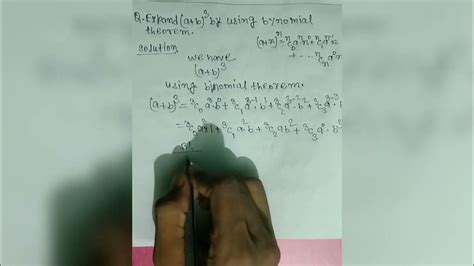 Q. Expand (a+b)³ by using bynomial
theorem.
solution
we have
(a+b)³
(a+x)ⁿ = ⁿC₀aⁿx⁰ + ⁿC₁aⁿ⁻¹x
+ ... ⁿCₙa⁰x
using binomial theorem.
(a+b)³ = ³C₀a³b⁰ + ³C₁a³⁻¹b¹ + ³C₂a³⁻²b² + ³C₃a³⁻³
= ³C₀a³×1 + ³C₁a²b + ³C₂ab² + ³C₃a⁰.b³